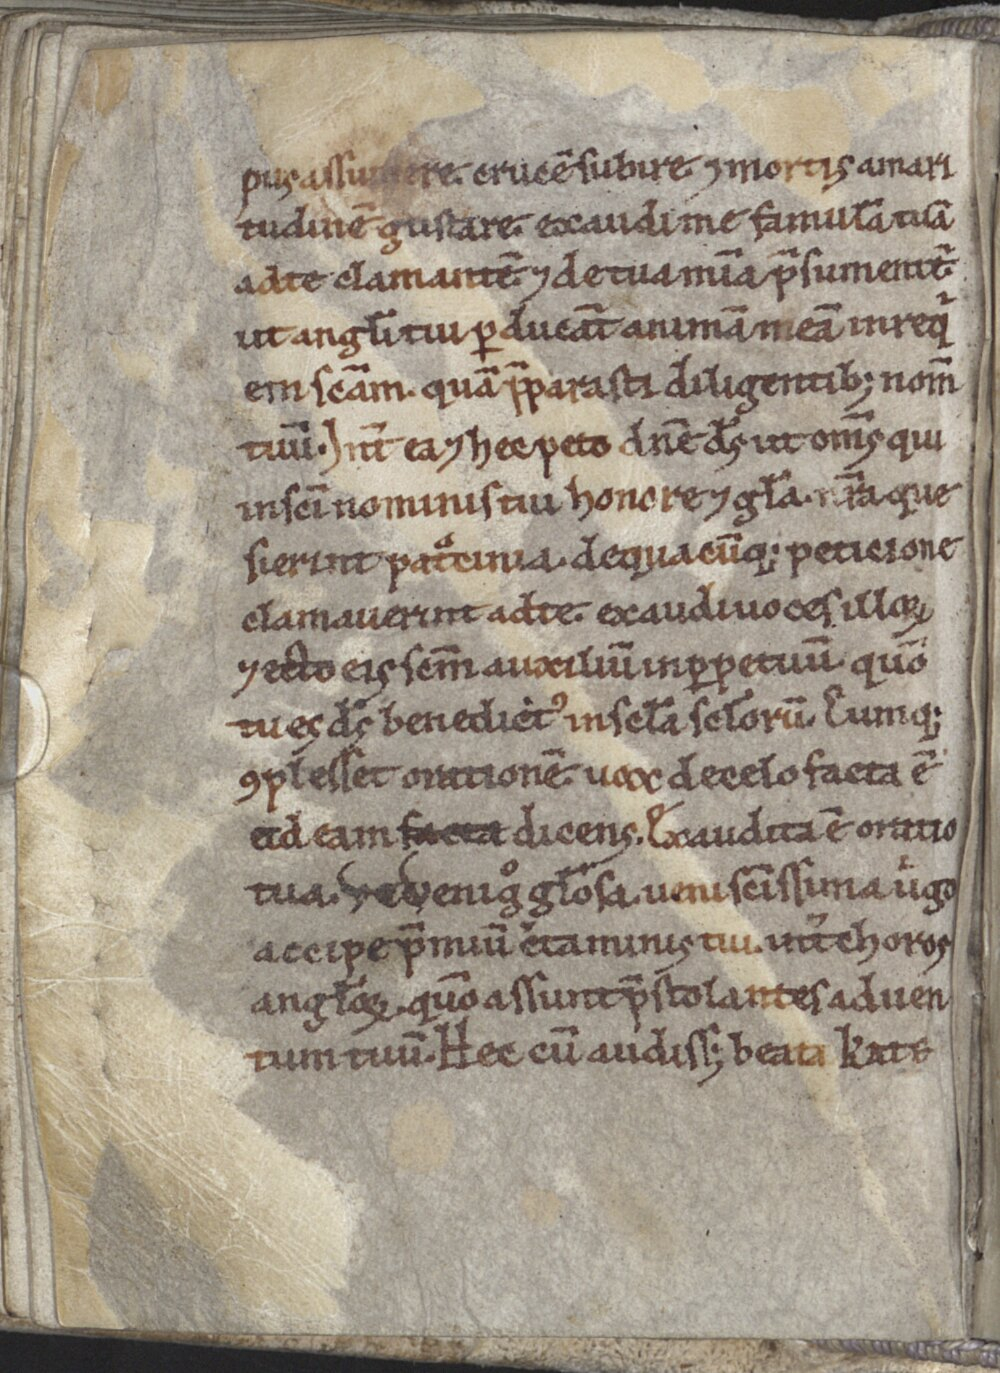 pus assumere. crucē subire. ⁊ mortis amari
tudinē gustare. exaudi me famulā tuā
ad te clamantē. ⁊ de tua mīa p̄sumentē.
ut angl̄i tui ꝑducāt animā meā in reqͥ
em scām. quā p̄parasti diligentibꝫ nom̄
tuū. Int̄ ea ⁊ hec peto dn̄e ds̄ ut om̄s qui
in sc̄i nominis tui honore ⁊ gl̄a. nr̄a que
sierint pat͛cinia. de quacūqꝫ peticione
clamauerint ad te. exaudi uoces illoꝝ
⁊ esto eis sēm auxiliū in ꝑpetuū. quō
tu es ds̄ benedictꝰ in sc̄la sc̄lorū. Cumqꝫ
ꝯplesset orationē. uox de celo facta ē
ad eam facta dicens. Exaudita ē oratio
tua. veni gͦ gl̄osa. ueni sc̄issima uͥgo
accipe p̄miū c̄taminis tui. int̄ choros
angl̄oꝝ. quō assunt p̄stolantes aduen
tum tuū. Hec cū audissꝫ beata kate